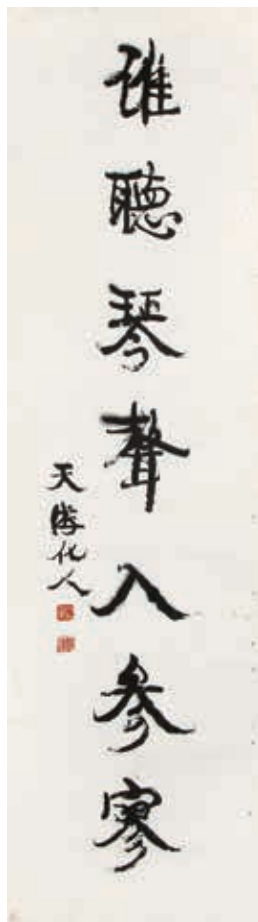 誰聽琴聲入參寥
天游化人